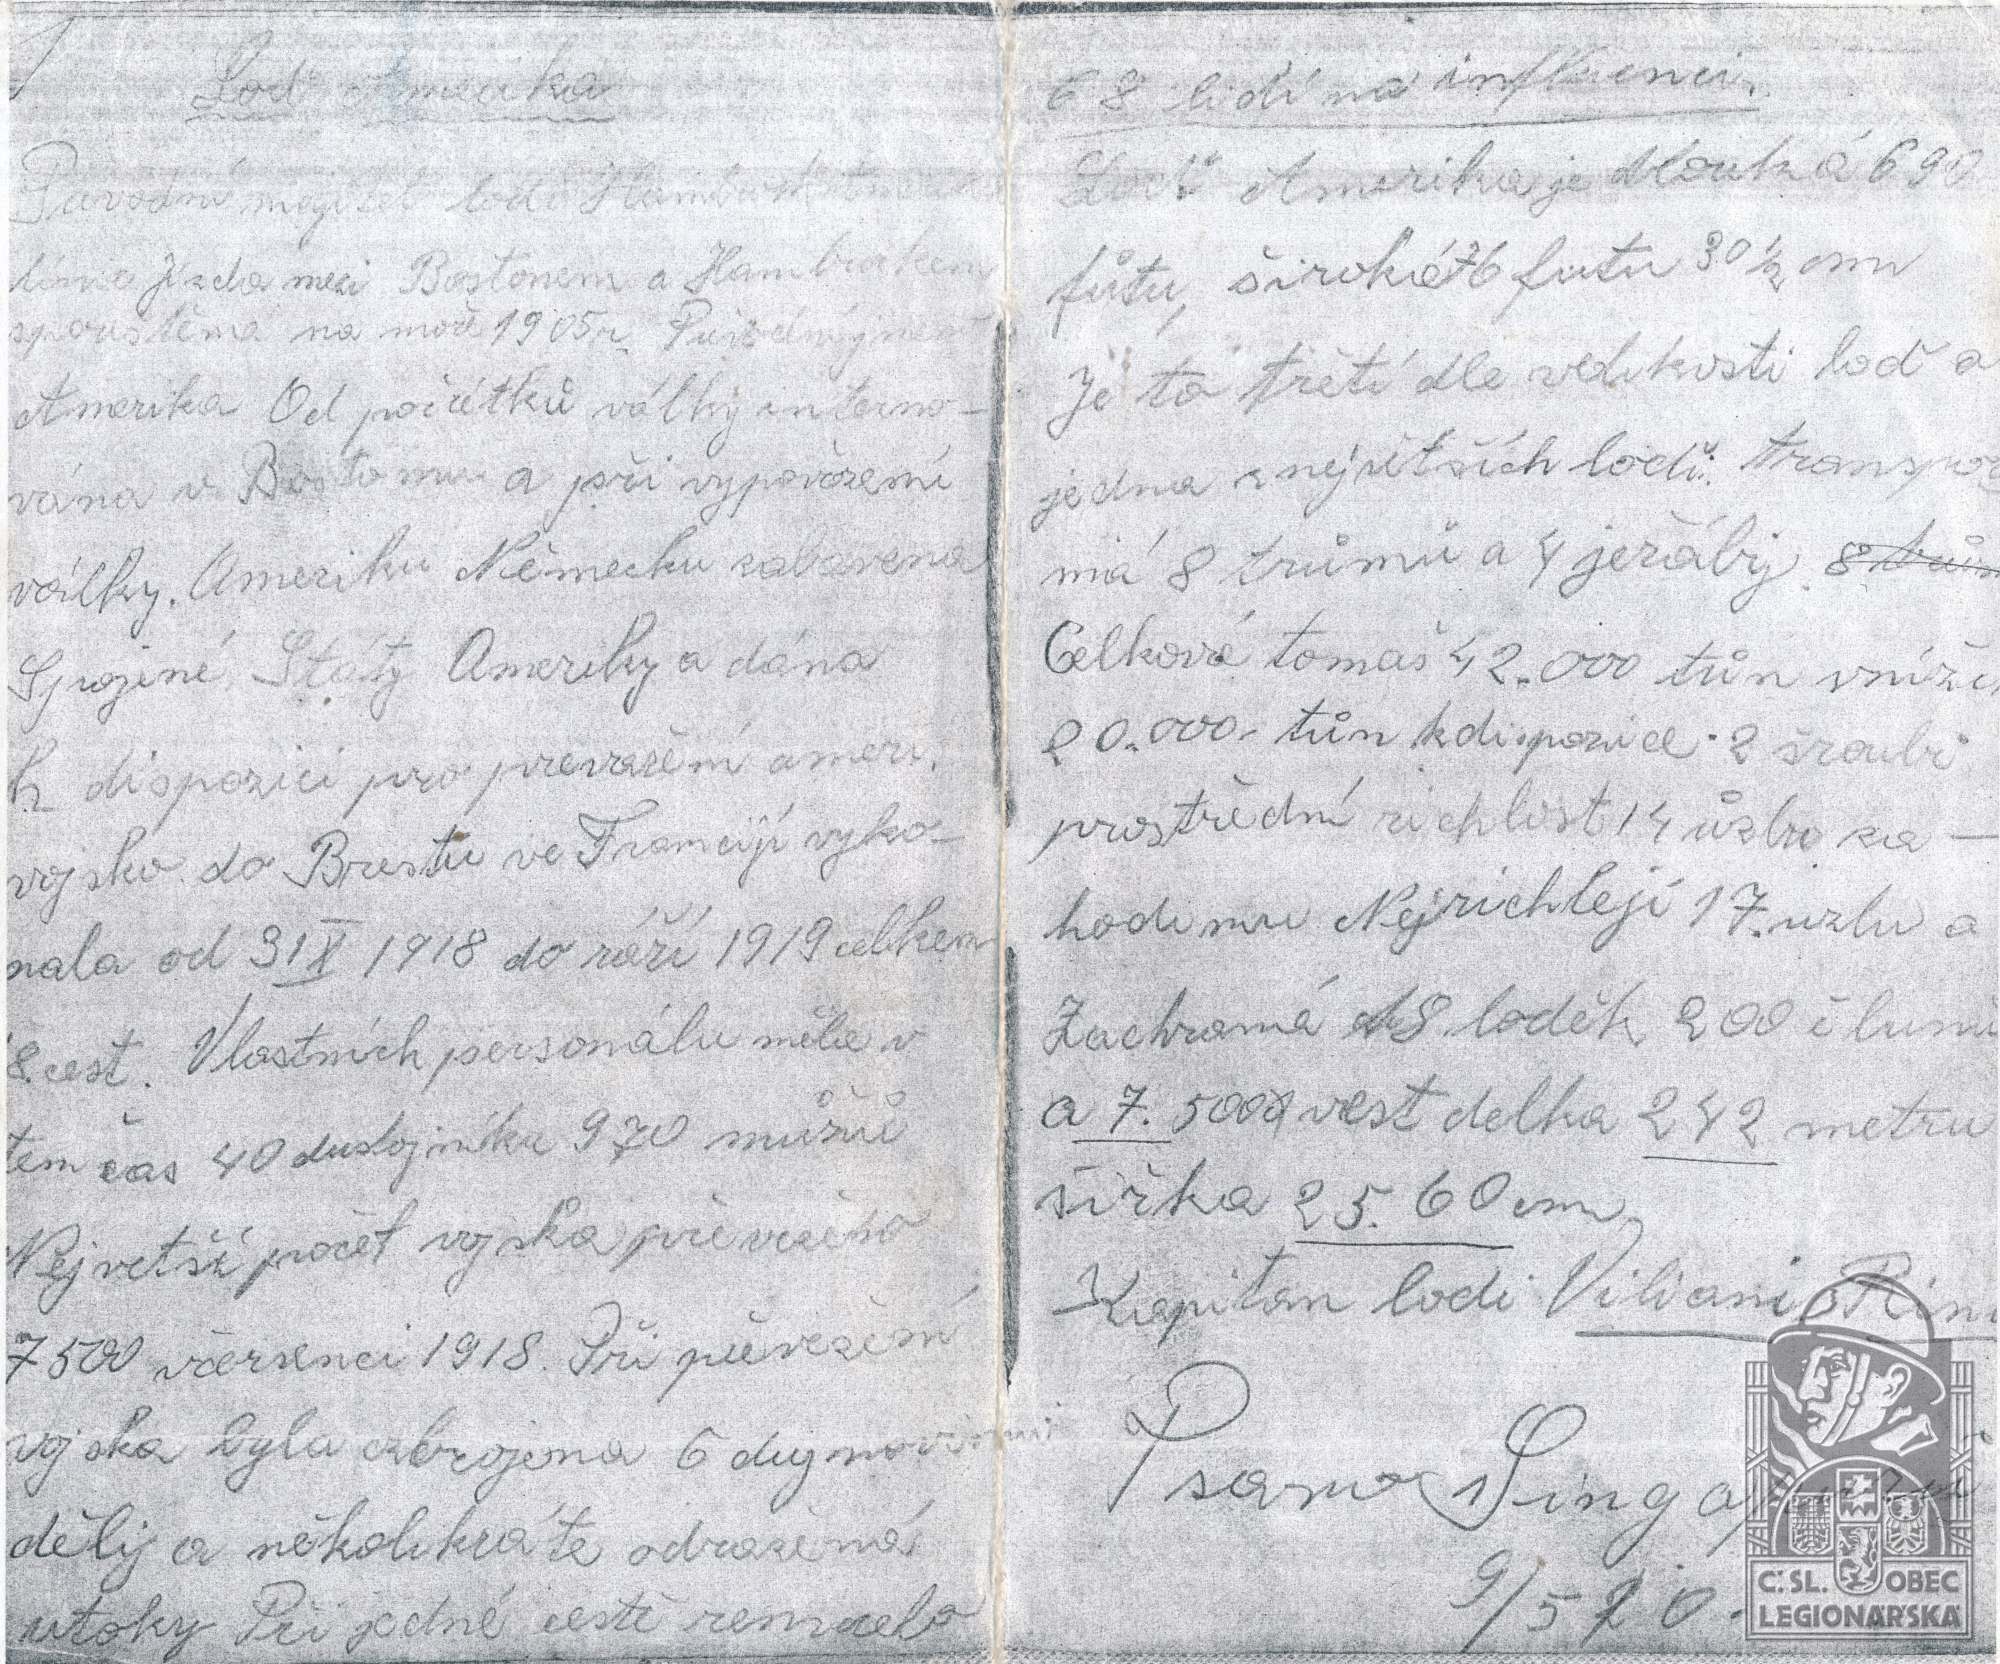 Loď Amerika
Původní majitel lodě Hamburk
línie Jízda mezi Bostonem a Hamburkem
spouštěná na moře 1905 r. Původní jmen
Amerika Od počátků války interno-
vána v Bostonu a při vypovězení
války. Ameriku Německu zabavena
Spojené Státy Ameriky a dána
k dispozici pro prevazení ameri.
vojsko do Brestu ve Francíji vyko-
nala od 31 X 1918 do září 1919 celkem
8. cest. Vlastních personálu měla v
tem čas 40 dustojníku 970 mužů
Největší počet vojska převezeno
7500 včersenci 1918. Při převezení
vojska byla ozbrojena 6 dujmovimi
děly a několikráte odražená
utoky Při jedné cestě zemřelo
68 lidí na influenci.
Loď Amerika je dlouká 690
fůtů, široká 76 futu 30 1/2 cm
Je to třetí dle velikosti loď a
jedna z nejvítších lodí. transpor
má 8 trůmů a 4 jeřáby. 8 trům
Celková tonaš 42.000 tůn vníže
20.000 tůn k dispozice. 2 šroubi
prostřední richlost 14 ůzlu za-
hodinu Nejrichlejí 17. uzlu a
Zachraná 18. loděk 200 člunů
a 7. 500 vest delka 242 metru
šířka 25. 60 cm
Kapitan lodi Viliam
Psano Singapur
9/5 20.
Č. SL. OBEC
LEGIONÁŘSKÁ